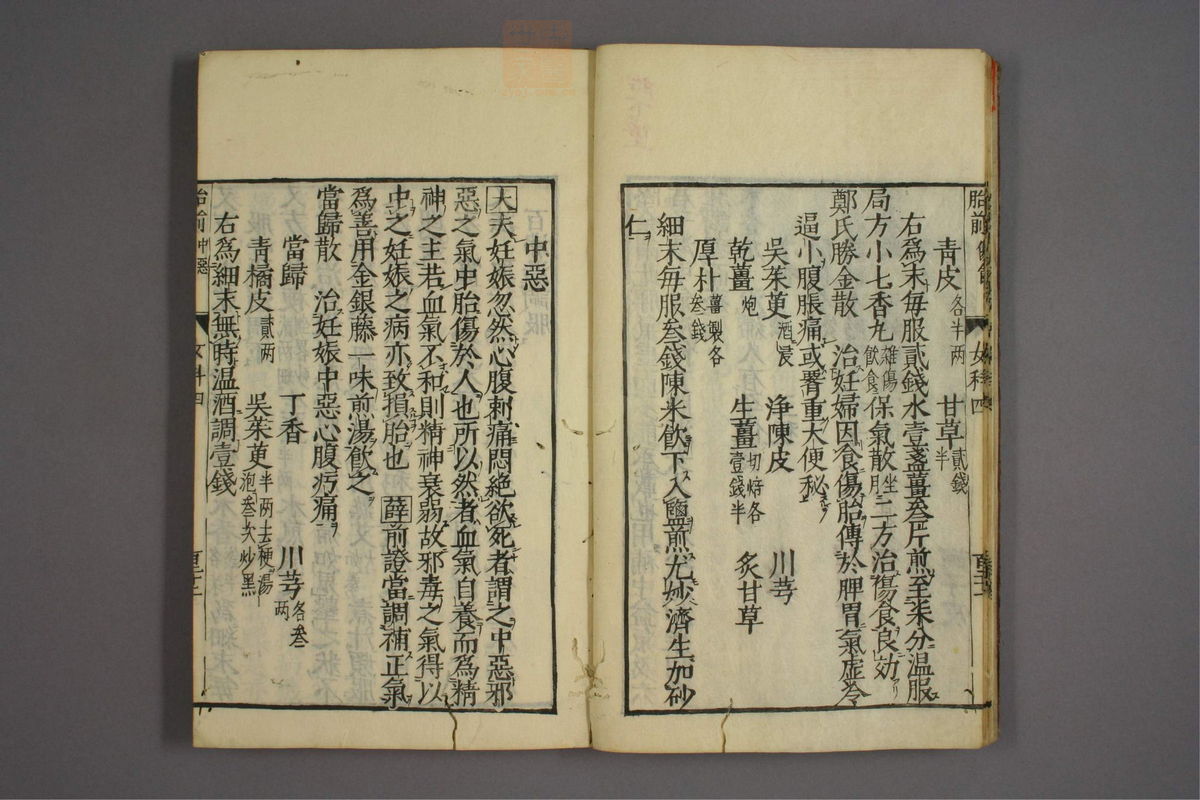 青皮 各半两 甘草 貳錢半
右為末每服貳錢水壹盞薑叁片煎至柒分温服
局方小七香丸 雖傷飲食 保氣散 二方治傷食良効
鄭氏勝金散 治妊婦因食傷胎傳於脾胃氣虛冷
逼小腹脹痛或脅重大便秘
吳茱萸 酒浸 浄陳皮 川芎
乾薑 炮 生薑 切焙各壹錢半 炙甘草
厚朴 薑製各叁錢
細末每服叁錢陳米飲下入鹽煎尤妙濟生加砂
仁
中惡
大夫妊娠忽然心腹刺痛悶絶欲死者謂之中惡邪
惡之氣中胎傷於人也所以然者血氣自養而為精
神之主若血氣不和則精神衰弱故邪毒之氣得以
中之妊娠之病亦致損胎也 薛 前證當調補正氣
為善用金銀藤一味煎湯飲之
當歸散 治妊娠中惡心腹㽲痛
當歸 丁香 川芎 各叁两
青橘皮 貳两 吳茱萸 半两去梗湯泡叁次炒黑
右為細末無時温酒調壹錢
胎前 中惡